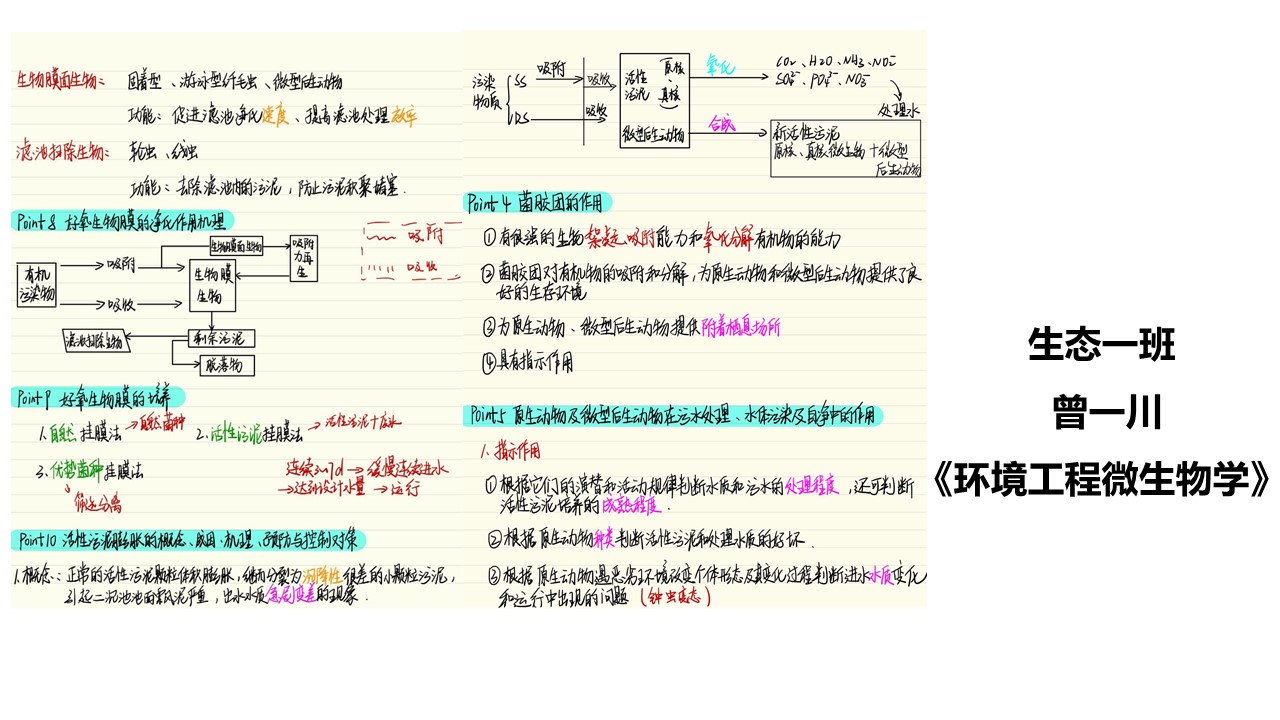 生物膜面生物： 固着型、游泳型纤毛虫、微型后生动物
功能：促进滤池净化速度、提高滤池处理效率
滤池扫除生物： 轮虫、线虫
功能：去除滤池内的污泥，防止污泥积聚堵塞．
Point 8 好氧生物膜的净化作用机理
吸附
吸收
有机污染物
吸附
吸收
生物膜面生物
吸附力再生
生物膜生物
滤池扫除生物
剩余污泥
脱落物
Point 9 好氧生物膜的培养
1.自然挂膜法 →自然菌种 2.活性污泥挂膜法 →活性污泥+废水
3.优势菌种挂膜法
筛选分离
连续3~7d → 缓慢连续进水
→达到设计水量 →运行
Point 10 活性污泥膨胀的概念、成因、机理、预防与控制对策
1.概念：正常的活性污泥颗粒体积膨胀，继而分裂为沉降性很差的小颗粒污泥，
引起二沉池池面飘泥严重，出水水质急剧变差的现象．
污染物质
SS 吸附 吸收
DS 吸收
活性污泥（原核、真核）
微型后生动物
氧化
CO₂、H2O、NH3、NO₂⁻
SO4²⁻、PO4³⁻、NO3⁻
处理水
合成
新活性污泥
原核、真核微生物＋微型
后生动物
Point 4 菌胶团的作用
①有很强的生物絮凝、吸附能力和氧化分解有机物的能力
②菌胶团对有机物的吸附和分解，为原生动物和微型后生动物提供了良
好的生存环境
③为原生动物、微型后生动物提供附着栖息场所
④具有指示作用
Point 5 原生动物及微型后生动物在污水处理、水体污染及自净中的作用
1.指示作用
①根据它们的演替和活动规律判断水质和污水的处理程度，还可判断
活性污泥培养的成熟程度．
②根据原生动物种类判断活性污泥和处理水质的好坏．
③根据原生动物遇恶劣环境改变个体形态及其变化过程判断进水水质变化
和运行中出现的问题（钟虫变态）
生态一班
曾一川
《环境工程微生物学》